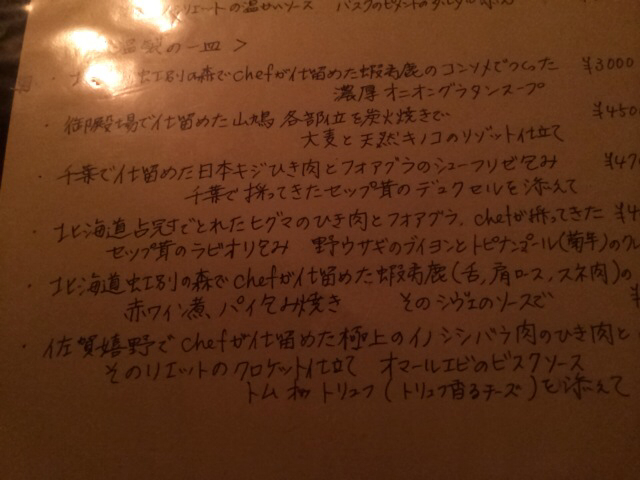 の温かいソース バスクのピメントの
温製の一皿 >
・北海道虹別の森でchefが仕留めた蝦夷鹿のコンソメでつくった ¥3000
濃厚オニオングラタンスープ
・御殿場で仕留めた山鳩 各部位を炭火焼きで ¥450
大麦と天然キノコのリゾット仕立て
・千葉で仕留めた日本キジひき肉とフォアグラのシューフリゼ包み ¥47
千葉で採ってきたセップ茸のデュクセルを添えて
・北海道占冠でとれたヒグマのひき肉とフォアグラ、chefが採ってきた ¥4
セップ茸のラビオリ包み 野ウサギのブイヨンとトピナンブール(菊芋)の
・北海道虹別の森でchefが仕留めた蝦夷鹿(舌,肩ロース,スネ肉)の ¥
赤ワイン煮、パイ包み焼き そのシヴェのソースで
・佐賀嬉野でchefが仕留めた極上のイノシシバラ肉のひき肉と
そのリエットのクロケット仕立て オマールエビのビスクソース
トム オ トリュフ(トリュフ香るチーズ)を添えて